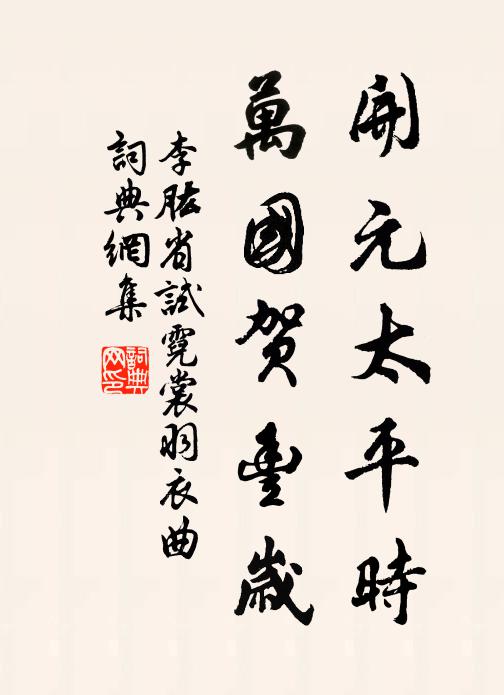 開元太平時
萬國賀豐歲
李肱省試霓裳羽衣曲
詞典網集
詞典
网印